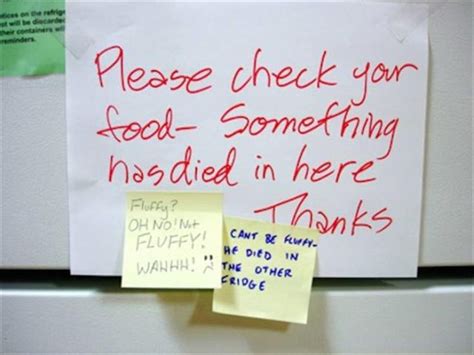 otices on the refrige
nt will be discarded
their containers will
reminders.
Please check your
food- Something
has died in here
Thanks
Fluffy?
OH NO! Not
FLUFFY!
WAHHH!
CANT BE FLUFFY-
HE DIED IN
THE OTHER
FRIDGE